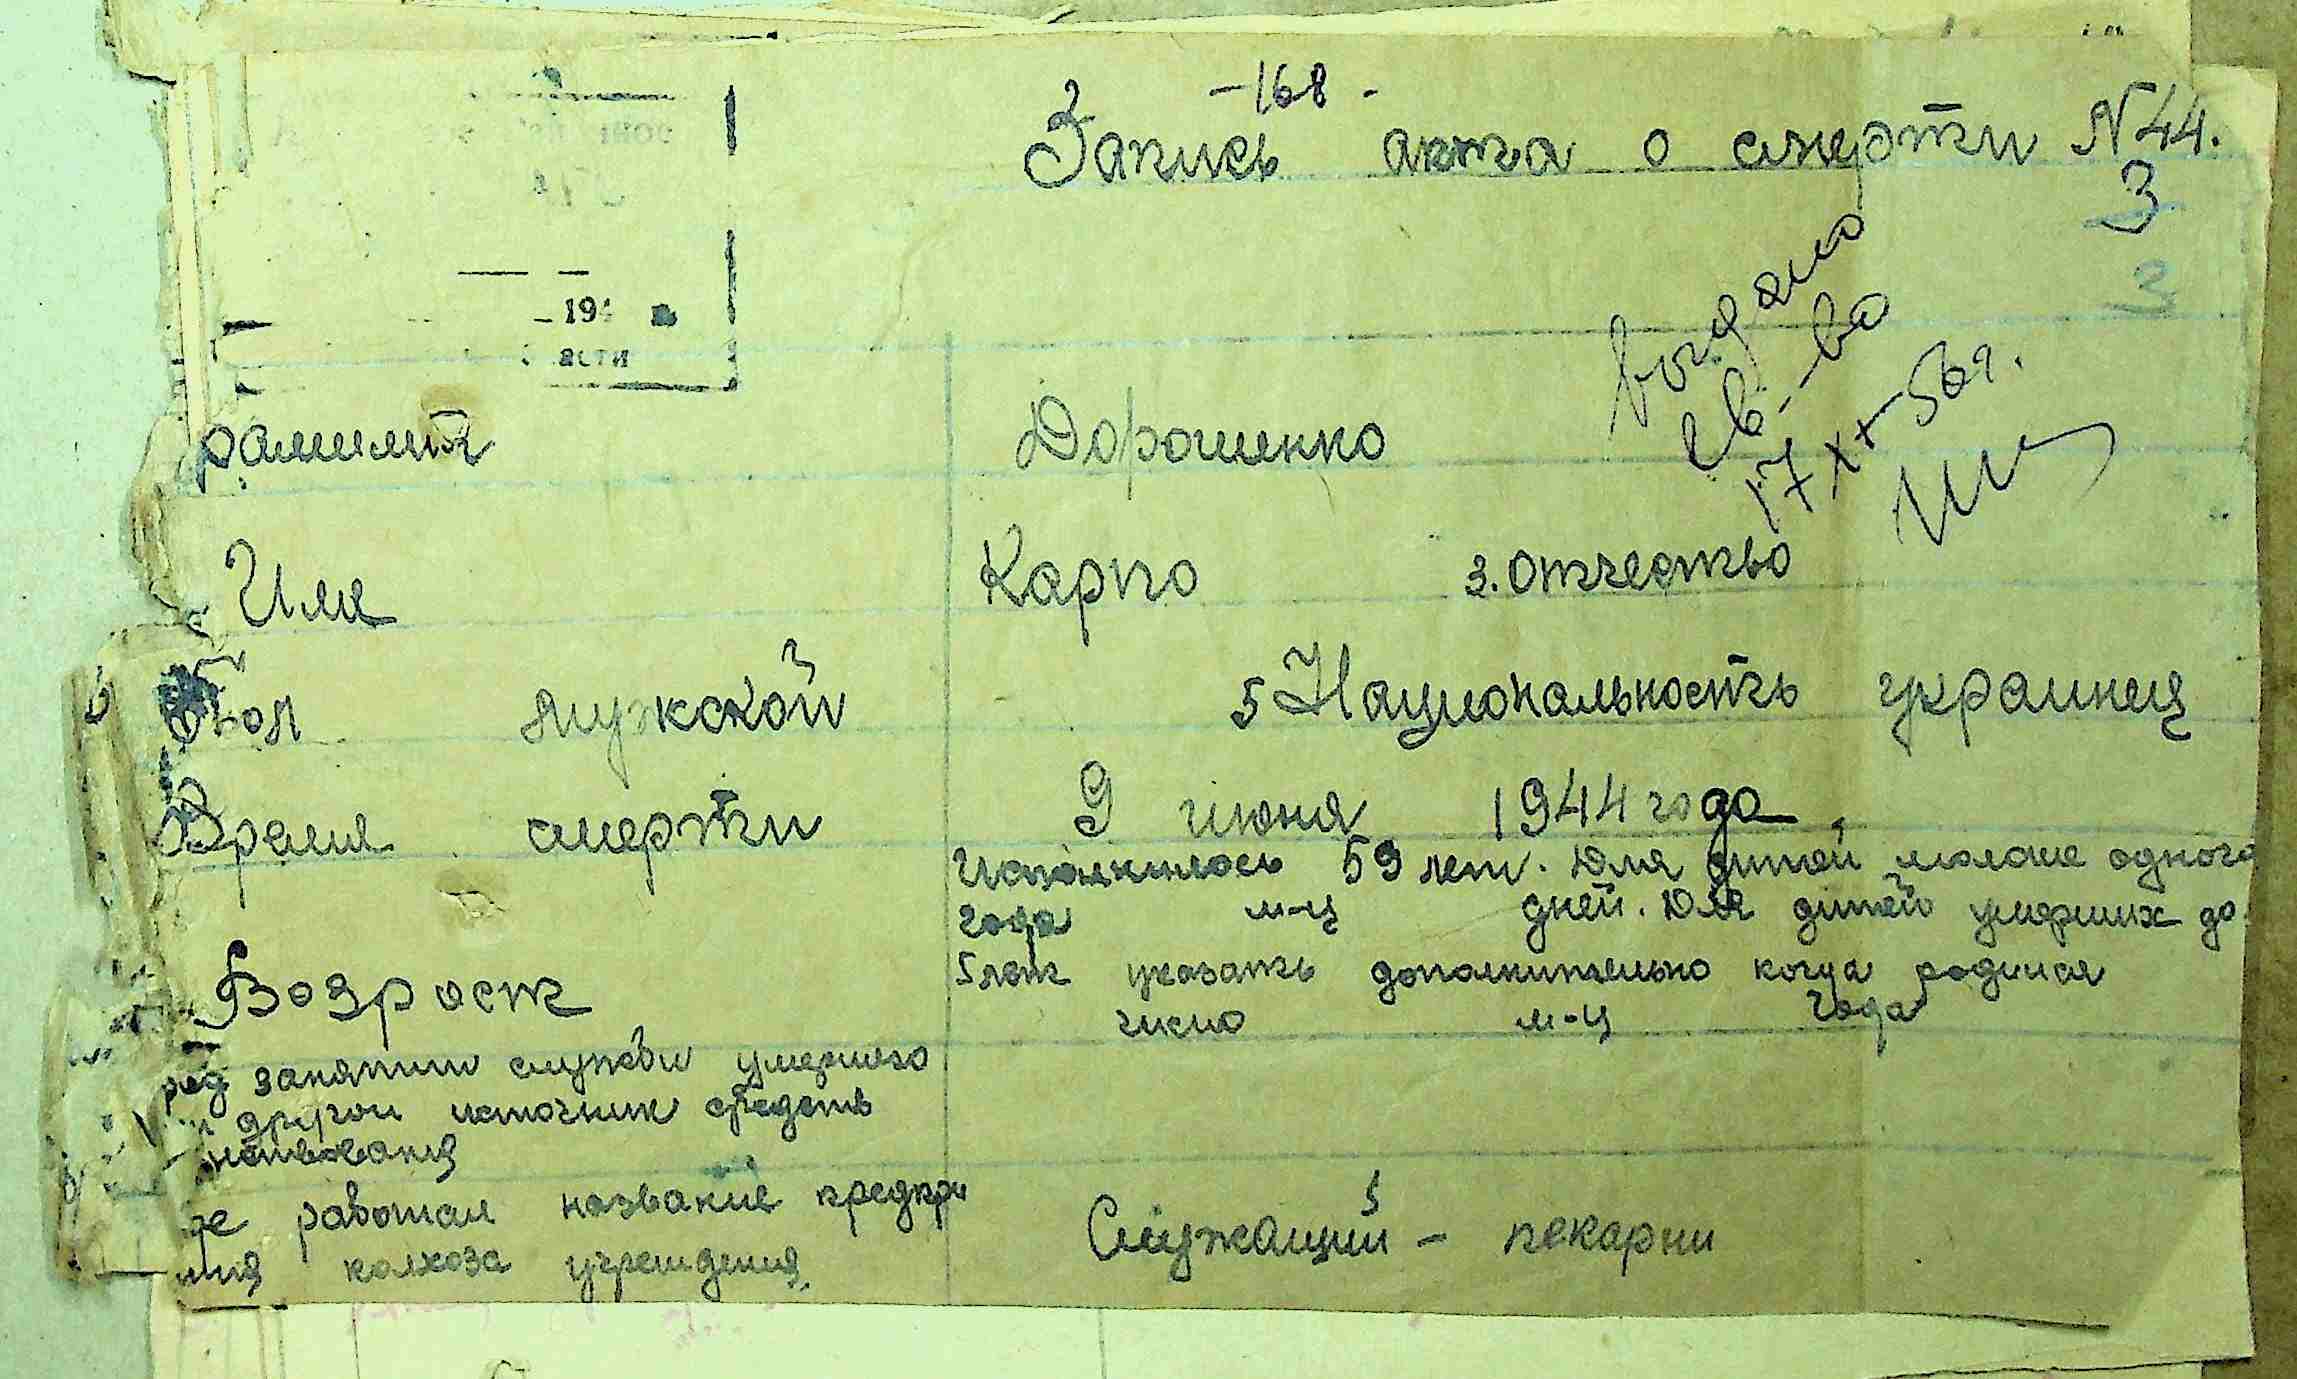 -168-
Запись акта о смерти N44.
3
3
194
асти
выдано
св-во
17 XI-56г.
фамилия Дорошенко
Имя Карпо 3. Отчество
Пол мужской 5 Национальность украинец
Время смерти 9 июня 1944 года
Исполнилось 59 лет. Для детей моложе одного
года м-ц дней. Для детей умерших до
Возраст 5 лет указать дополнительно когда родился
число м-ц года
род занятии службы умершего
и другой источник средств
ществования
где работал название предпри
ятия колхоза учреждения
Служащий - пекарни